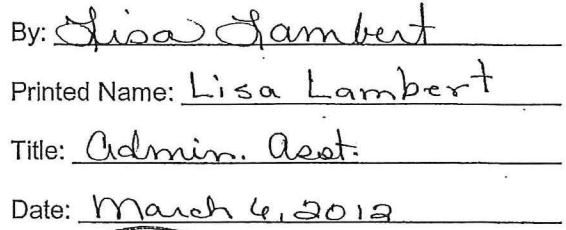 By: Lisa Lambert
Printed Name: Lisa Lambert
Title: Admin. Asst.
Date: March 6, 2012